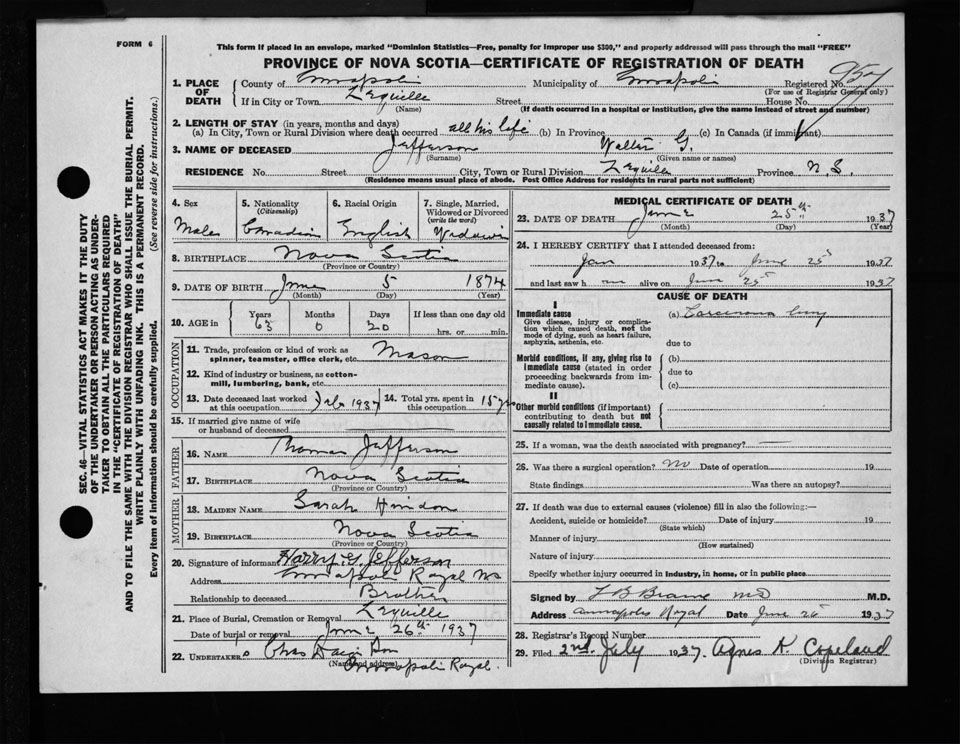 FORM 6
This form if placed in an envelope, marked "Dominion Statistics—Free, penalty for improper use $300," and properly addressed will pass through the mail "FREE"
PROVINCE OF NOVA SCOTIA—CERTIFICATE OF REGISTRATION OF DEATH
SEC. 46—VITAL STATISTICS ACT MAKES IT THE DUTY
OF THE UNDERTAKER OR PERSON ACTING AS UNDER-
TAKER TO OBTAIN ALL THE PARTICULARS REQUIRED
IN THE "CERTIFICATE OF REGISTRATION OF DEATH"
AND TO FILE THE SAME WITH THE DIVISION REGISTRAR WHO SHALL ISSUE THE BURIAL PERMIT.
WRITE PLAINLY WITH UNFADING INK. THIS IS A PERMANENT RECORD.
Every item of information should be carefully supplied. (See reverse side for instructions.)
1. PLACE OF DEATH
County of Annapolis Municipality of Annapolis Registered No.
(For use of Registrar General only)
If in City or Town Lequille Street House No.
(Name) (If death occurred in a hospital or institution, give the name instead of street and number)
2. LENGTH OF STAY (in years, months and days)
(a) In City, Town or Rural Division where death occurred all his life (b) In Province (c) In Canada (if immigrant)
3. NAME OF DECEASED Jefferson Walter G.
(Surname) (Given name or names)
RESIDENCE No. Street City, Town or Rural Division Lequille Province N S.
(Residence means usual place of abode. Post Office Address for residents in rural parts not sufficient)
4. Sex
Male
5. Nationality
(Citizenship)
Canadian
6. Racial Origin
English
7. Single, Married,
Widowed or Divorced
(write the word)
Widower
8. BIRTHPLACE Nova Scotia
(Province or Country)
9. DATE OF BIRTH June 5 1874
(Month) (Day) (Year)
10. AGE in Years Months Days If less than one day old
63 0 20 hrs. or min.
OCCUPATION
11. Trade, profession or kind of work as Mason
spinner, teamster, office clerk, etc.
12. Kind of industry or business, as cotton-
mill, lumbering, bank, etc.
13. Date deceased last worked
at this occupation Feb 1937
14. Total yrs. spent in
this occupation 15 yrs
15. If married give name of wife
or husband of deceased
FATHER
16. NAME Thomas Jefferson
17. BIRTHPLACE Nova Scotia
(Province or Country)
MOTHER
18. MAIDEN NAME Sarah
19. BIRTHPLACE Nova Scotia
(Province or Country)
20. Signature of informant Harry G. Jefferson
Address Annapolis Royal NS
Relationship to deceased Brother
21. Place of Burial, Cremation or Removal Lequille
Date of burial or removal June 26th 1937
22. UNDERTAKER Chas
(Name and address) Annapolis Royal.
MEDICAL CERTIFICATE OF DEATH
23. DATE OF DEATH June 25th 1937
(Month) (Day) (Year)
24. I HEREBY CERTIFY that I attended deceased from:
Jan 1937 to June 25th 1937
and last saw h im alive on June 25 1937
CAUSE OF DEATH
I
Immediate cause
Give disease, injury or complica-
tion which caused death, not the
mode of dying, such as heart failure,
asphyxia, asthenia, etc.
(a) Carcinoma lung
due to
Morbid conditions, if any, giving rise to
immediate cause (stated in order
proceeding backwards from im-
mediate cause).
(b)
due to
(c)
II
Other morbid conditions (if important)
contributing to death but not
causally related to immediate cause.
25. If a woman, was the death associated with pregnancy? —
26. Was there a surgical operation? no Date of operation 19
State findings Was there an autopsy?
27. If death was due to external causes (violence) fill in also the following:—
Accident, suicide or homicide? Date of injury 19
(State which)
Manner of injury
(How sustained)
Nature of injury
Specify whether injury occurred in industry, in home, or in public place
Signed by L B Braine MD M.D.
Address Annapolis Royal Date June 26 1937
28. Registrar's Record Number
29. Filed 2nd. July 1937. Agnes K. Copeland
(Division Registrar)